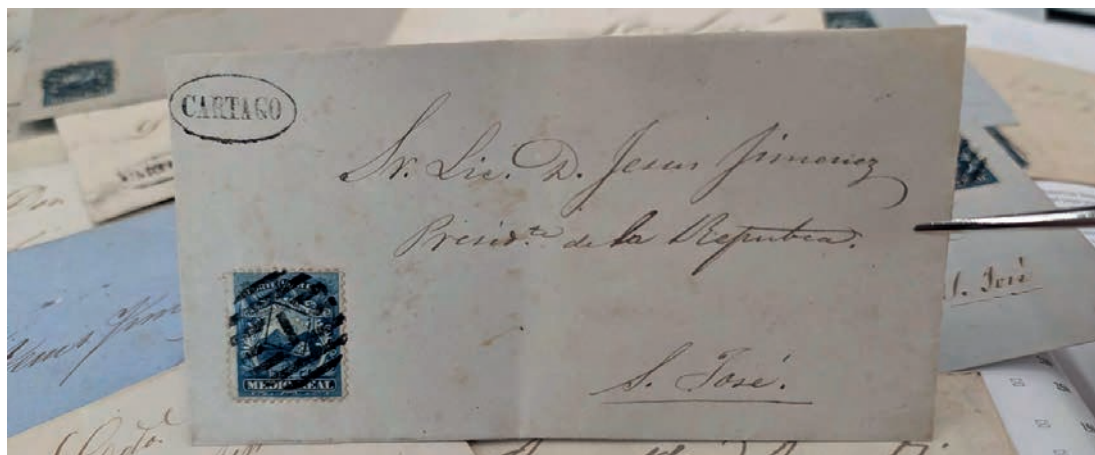 CARTAGO
Sr. Lic. D. Jesus Jimenez
Presid.te de la Republica.
MEDIO REAL
S. José.
S. José